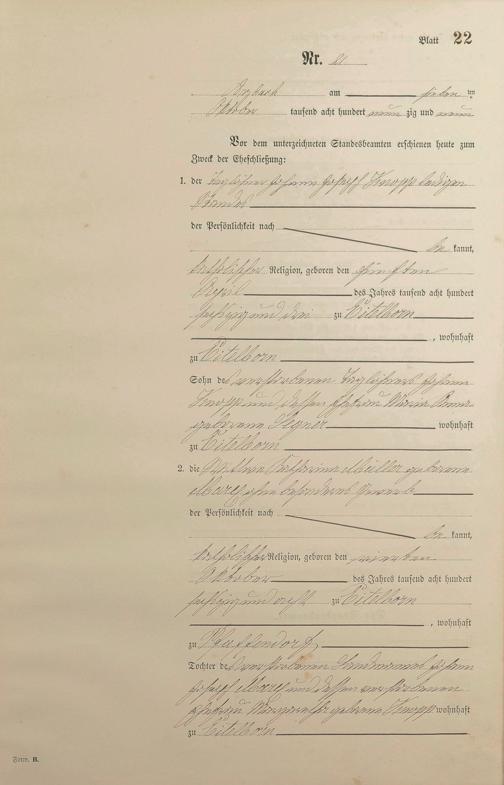 Blatt 22
Nr. 21
am sieben ten
Oktober tausend acht hundert neun zig und neun
Vor dem unterzeichneten Standesbeamten erschienen heute zum
Zweck der Eheschließung:
1. der Taglöhner Johann Joseph Knopp ledigen
Standes
der Persönlichkeit nach
be kannt,
katholischer Religion, geboren den fünften
April des Jahres tausend acht hundert
sechzig und drei zu Eitelborn
, wohnhaft
zu Eitelborn
Sohn des verstorbenen Taglöhners Johann
Knopp und dessen Ehefrau Maria Anna
geborene wohnhaft
zu Eitelborn
2. die Wittwe Katharina Müller geborene
ohne besonderes Gewerb
der Persönlichkeit nach
be kannt,
katholischer Religion, geboren den vierten
Oktober des Jahres tausend acht hundert
sechzig und acht zu Eitelborn
, wohnhaft
zu Pfaffendorf
Tochter des verstorbenen Landmannes Johann
Joseph und dessen verstorbenen
Ehefrau Margaretha geborene Knopp wohnhaft
zu Eitelborn
Form. B.